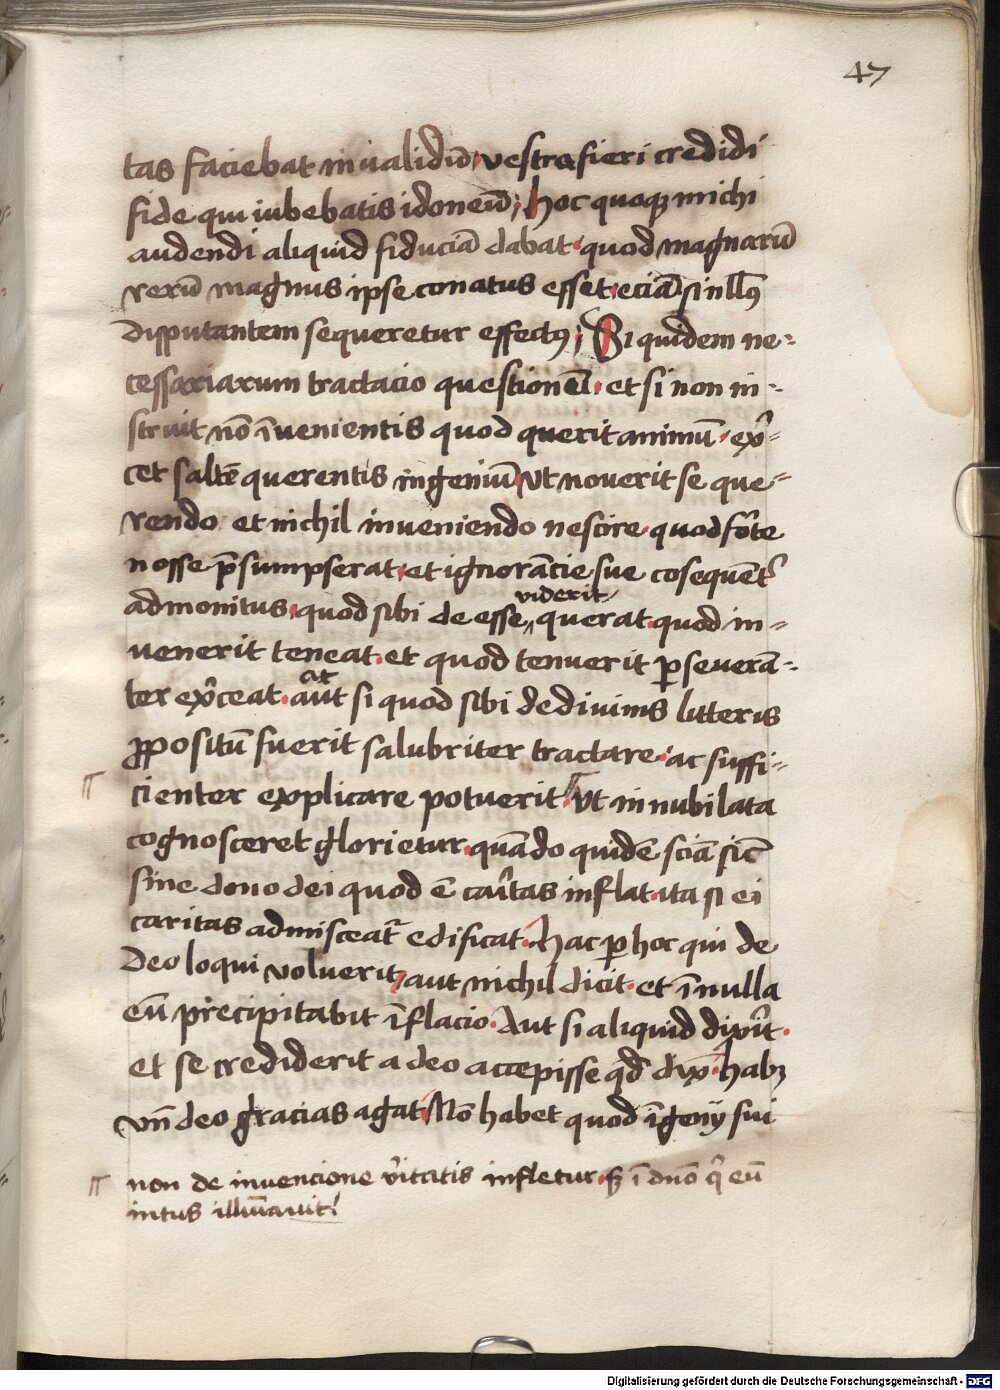 47
tas faciebat inualidū · vestra fieri credidi
fide qui iubebatis idoneū ; hoc quoqꝫ michi
audendi aliquid fiduciā dabat · quod magnarū
rerū magnus ipse conatus esset · eciā si nllꝰ
disputantem sequeretur effectꝰ ; Si quidem ne-
cessariarum tractacio questionē · et si non in-
struit nō īvenientis quod querit animū · exꝰ-
cet saltē querentis ingeniū vt noverit se que-
rendo et nichil inveniendo nescire · quod forte
nosse p̄sumpserat · et ignorācie sue cosequēt᷑
admonitus · quod sibi de esse ‸ querat · quod in-
viderit
venerit teneat · et quod tenuerit ꝑseverā-
ter exꝰceat · aut si quod sibi de divinis litteris
ar
ꝓpositū fuerit salubriter tractare · ac suffi-
cienter explicare potuerit · vt innubilata
cognosceret glorietur · quādo quidē sciā sic̄
sine dono dei quod ē caritas inflat · ita si ei
caritas admisceat᷑ edificat · hac ꝑ hoc qui de
deo loqui voluerit aut nichil dicit · et ī nulla
eū precipitabit īflacio · Aut si aliquid dixꝰit ·
et se crediderit a deo accepisse qd̄ dix̄ · habꝫ
vn̄ deo gracias agat · Nō habet quod īgenij sui
non de invencione vꝰitatis infletur · sꝫ ī dn̄o q̇ eū
intus illūavit